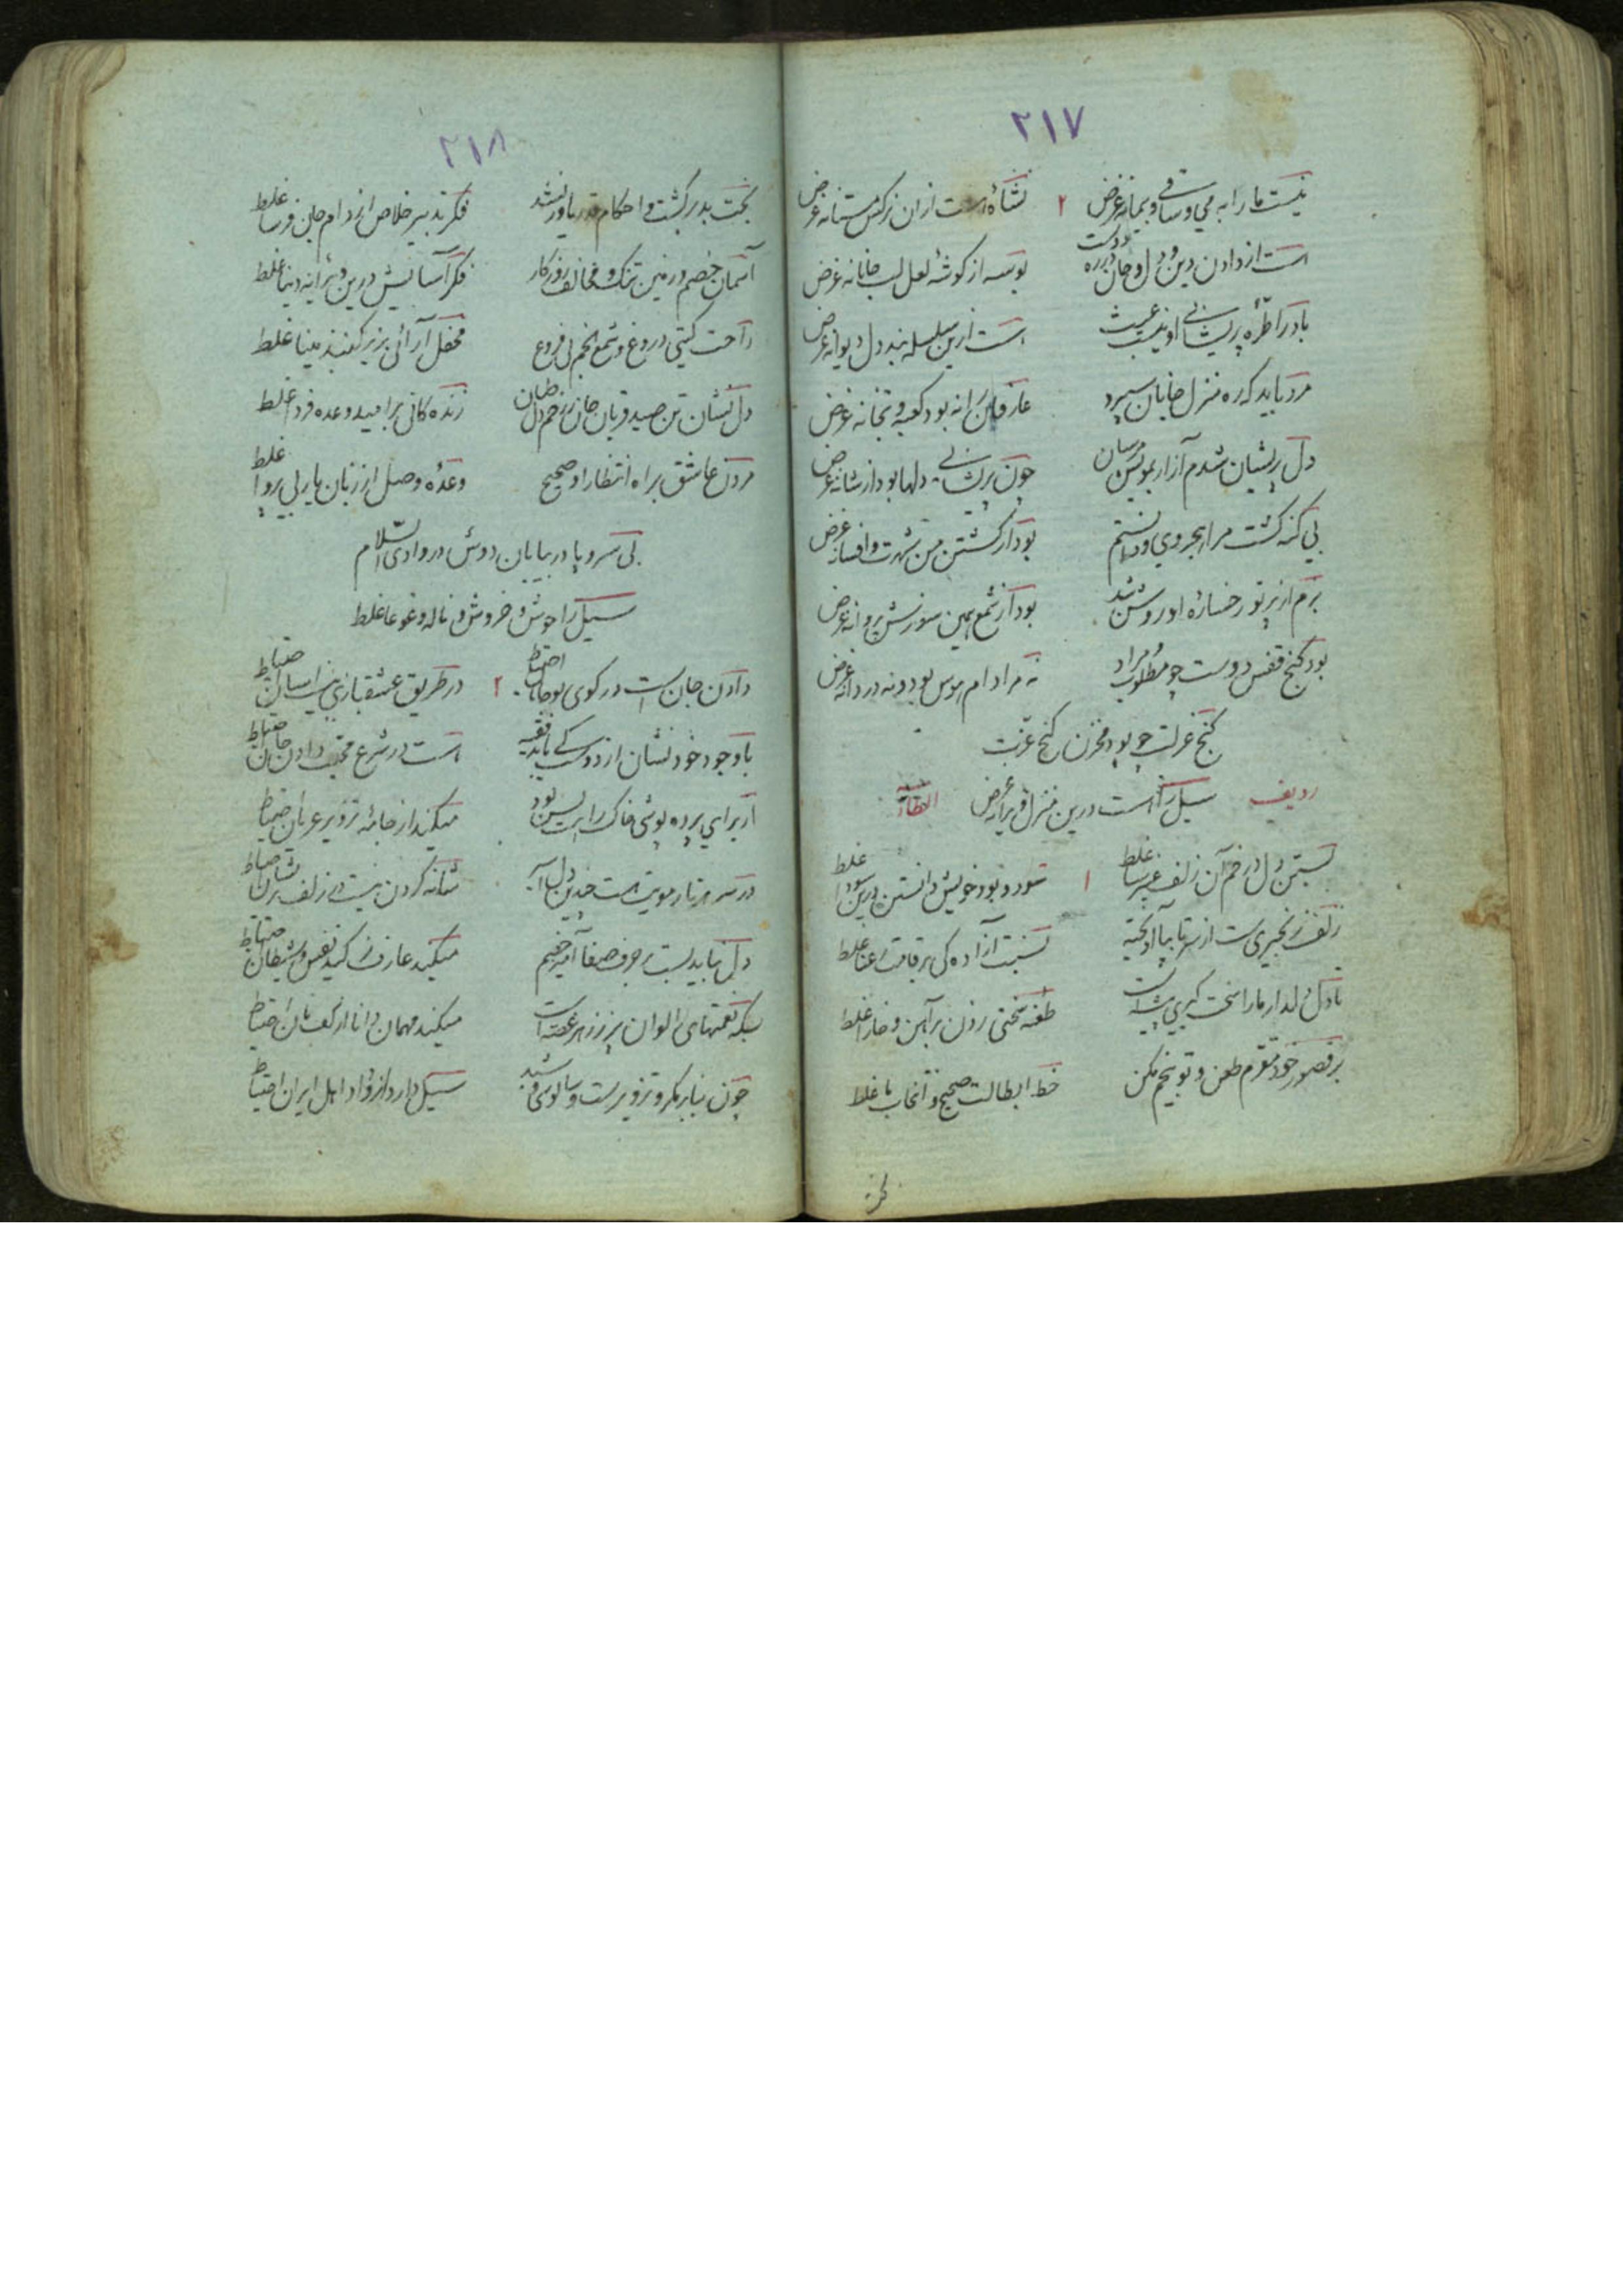 ۲۱۷
نیست ما را به می و ساقی و پیمانه غرض ۲ نشأه است ازان نرکس مستانه غرض
است از دادن دین و دل و جان در ره دوست بوسه از کوشهٔ لعل لب جانانه غرض
باد را طرّه پریشانی او نیست عبث است ازین سلسله بند دل دیوانه غرض
مرد باید که ره منزل جانان سپرد عارفان را نه بود کعبه و بتخانه غرض
دل پریشان شدم آزار بمویش مرسان چون پریشانی دلها بود از شانه غرض
بی کنه کشت مرا بود از کشتن من شهرت و افسانه غرض
بزم از پرتو رخسارهٔ او روشن شد بود از شمع همین سوزش پروانه غرض
بود کنج قفس دوست چو مطلوب مراد نه مرا دام هوس بود و نه دردانه غرض
کنج عزلت چو بود مخزن کنج عزت
سیل را است درین منزل ویرانه غرض
ردیف الطاء
بستن دل در خم آن زلف عنبرسا غلط ۱ سود و بود خویش دانستن درین سودا غلط
زلف زنجیری است از سر تا بپا آویخته نسبت آزاده کی بر قامت رعنا غلط
با دل دلدار ما را سخت کیری پیشه است طعنه سختی زدن بر آهن و خارا غلط
بر قصور خود مقرم طعن و توبیخم مکن خط ابطالت صحیح و انتخاب ما غلط
۲۱۸
بخت بد برکشت و احکام قدر یاور نشد فکر تدبیر خلاص از دام جان فرسا غلط
آسمان خصم و زمین تنک و مخالف روزکار فکر آسایش درین ویرانه دنیا غلط
راحت کیتی دروغ و شمع انجم بی فروغ محفل آرائی بزیر کنبذ مینا غلط
دل نشان تن صید و قربان جان ز زخم دل طپان زنده کانی بر امید وعده فردا غلط
مردن عاشق براه انتظار او صحیح وعدهٔ وصل از زبان یار بی پروا غلط
بی سر و پا در بیابان دوش در وادی السّلام
سیل را جوش و خروش و ناله و غوغا غلط
دادن جان است در کوی تو جانان احتیاط ۲ در طریق عشقبازی نیست آسان احتیاط
با وجود خود نشان از دوست کی یابد فقیه است در شرع محبت دادن جان احتیاط
از برای پرده پوشی خاک را بس بود میکند از جامهٔ تزویر عریان احتیاط
در سر هر تار مویت است چندین دل اسیر شانه کردن نیست در زلف پریشان احتیاط
دل نباید بست بر حرف صفا آمیز خصم میکند عارف ز کید نفس و شیطان احتیاط
بسکه نعمتهای الوان پر ز زهر غصه است میکند مهمان دانا از کف نان احتیاط
چون بنا بر مکر و تزویر است و سالوسی و شید سیل دارد از وداد اهل ایران احتیاط